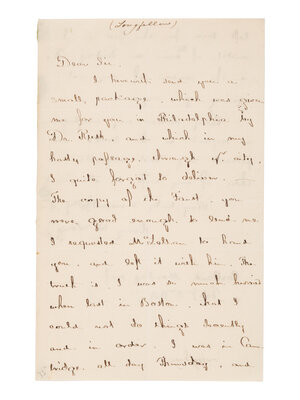 (Longfellow)
Dear Sir.
I herewith send you a
small package, which was given
me for you in Philadelphia by
Dr. Rush, and which in my
hasty passage through yr city
I quite forgot to deliver.
The copy of the Faust you
were good enough to lend me
I requested McLellan to hand
you, and left it with him. The
truth is, I was so much hurried
when last in Boston, that I
could not do things decently
and in order. I was in Cam
bridge all day Thursday, and